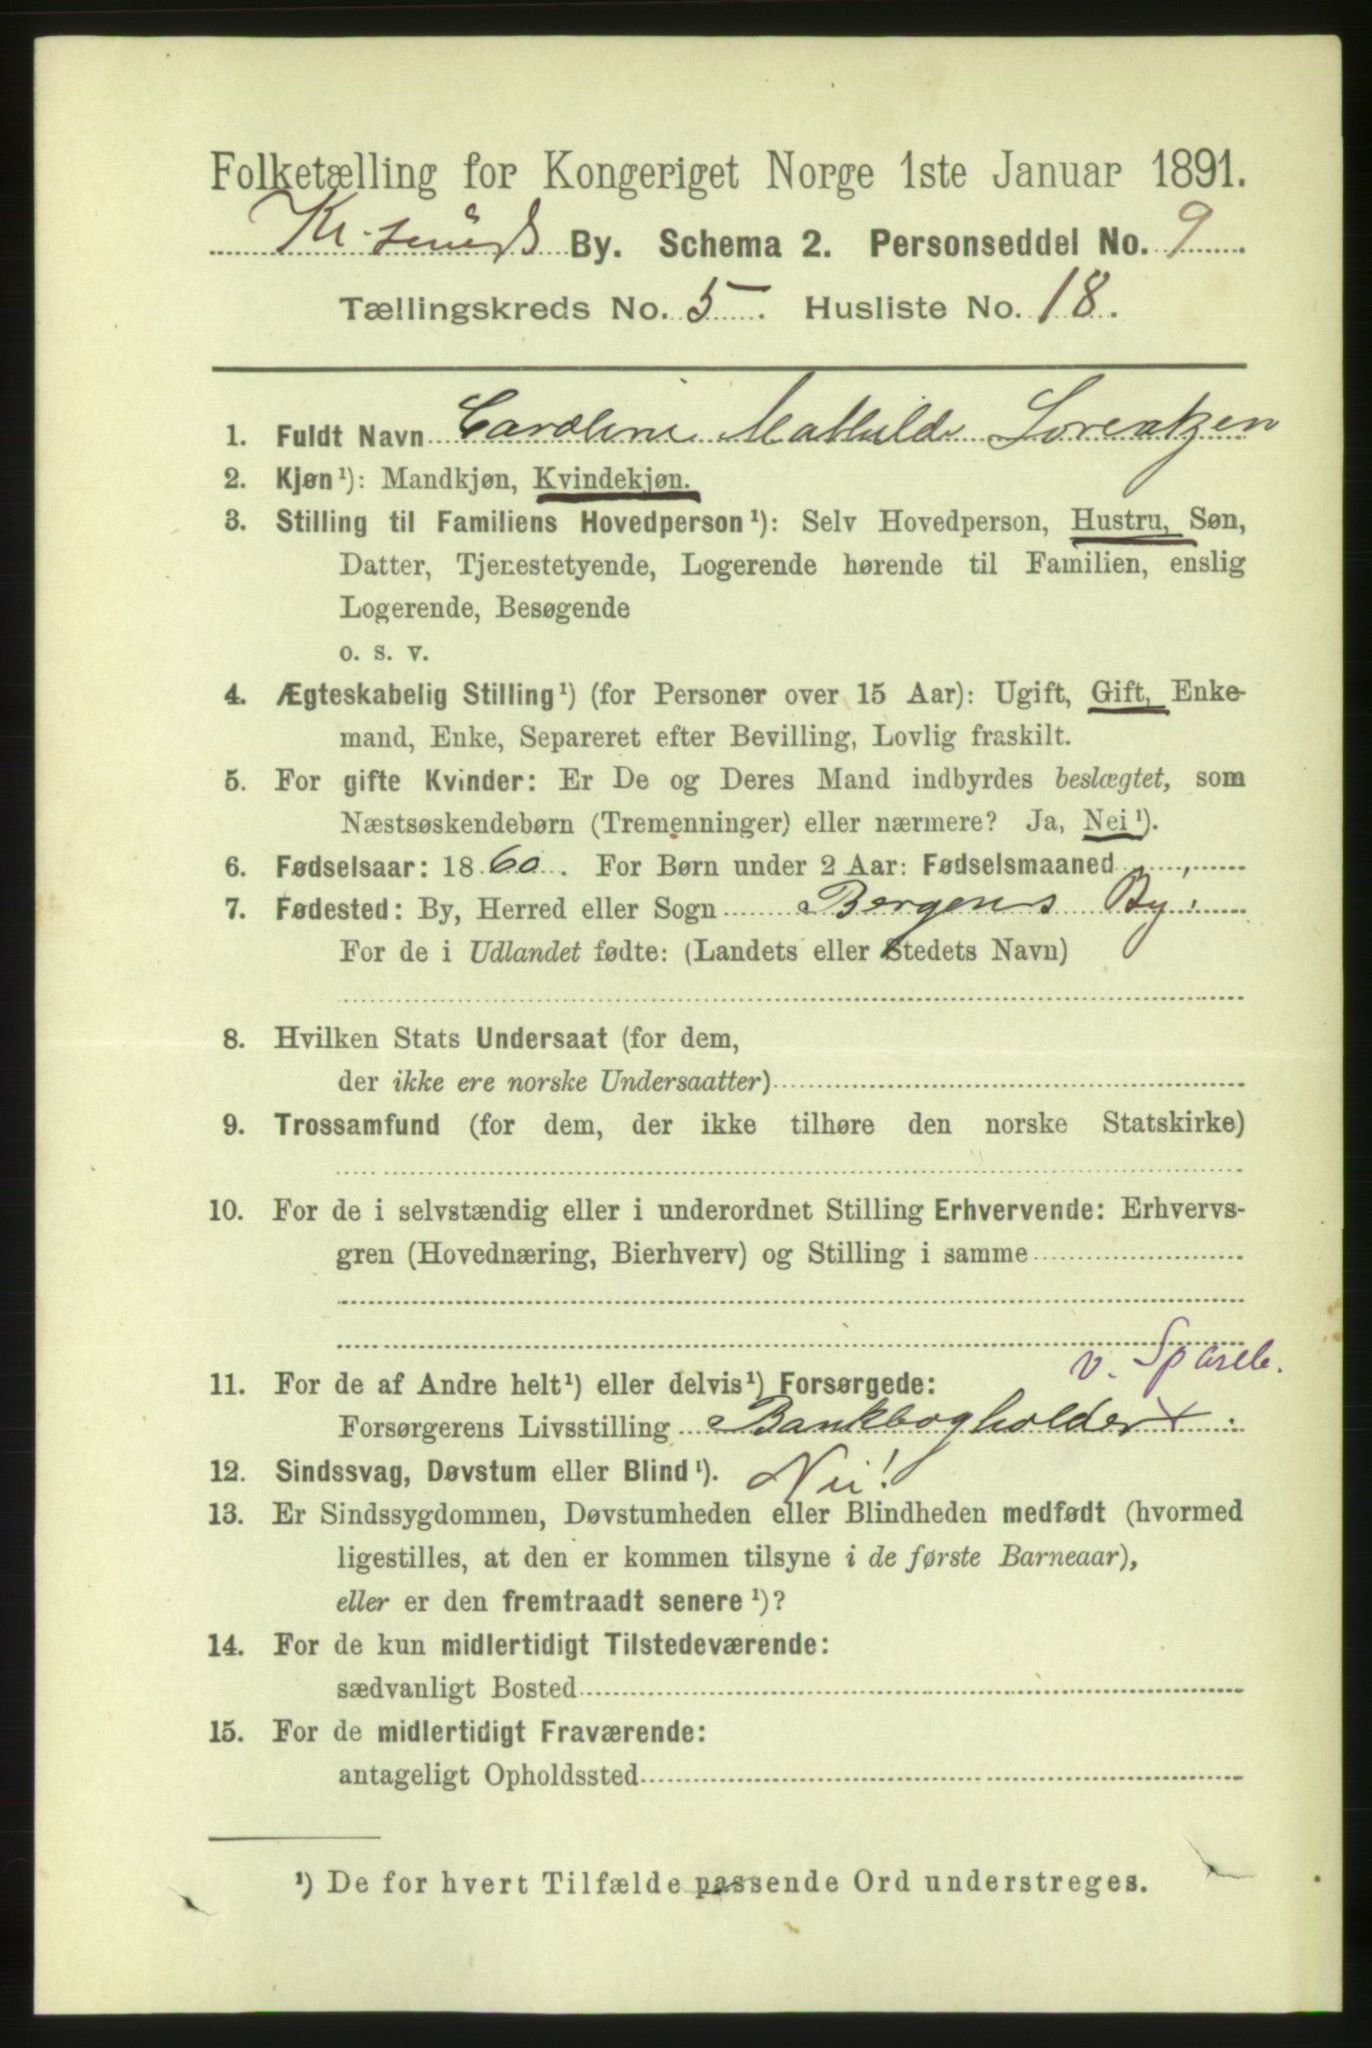 Folketælling for Kongeriget Norge 1ste Januar 1891.
Kr.sunds By. Schema 2. Personseddel No. 9
Tællingskreds No. 5. Husliste No. 18.
1. Fuldt Navn Caroline Mathilde Lorentzen
2. Kjøn¹): Mandkjøn, Kvindekjøn.
3. Stilling til Familiens Hovedperson¹): Selv Hovedperson, Hustru, Søn,
Datter, Tjenestetyende, Logerende hørende til Familien, enslig
Logerende, Besøgende
o. s. v.
4. Ægteskabelig Stilling¹) (for Personer over 15 Aar): Ugift, Gift, Enke-
mand, Enke, Separeret efter Bevilling, Lovlig fraskilt.
5. For gifte Kvinder: Er De og Deres Mand indbyrdes beslægtet, som
Næstsøskendebørn (Tremenninger) eller nærmere? Ja, Nei¹).
6. Fødselsaar: 1860. For Børn under 2 Aar: Fødselsmaaned
7. Fødested: By, Herred eller Sogn Bergens By.
For de i Udlandet fødte: (Landets eller Stedets Navn)
8. Hvilken Stats Undersaat (for dem,
der ikke ere norske Undersaatter)
9. Trossamfund (for dem, der ikke tilhøre den norske Statskirke)
10. For de i selvstændig eller i underordnet Stilling Erhvervende: Erhvervs-
gren (Hovednæring, Bierhverv) og Stilling i samme
v. Spareb.
11. For de af Andre helt¹) eller delvis¹) Forsørgede:
Forsørgerens Livsstilling Bankbogholder x
12. Sindssvag, Døvstum eller Blind¹). Nei!
13. Er Sindssygdommen, Døvstumheden eller Blindheden medfødt (hvormed
ligestilles, at den er kommen tilsyne i de første Barneaar),
eller er den fremtraadt senere¹)?
14. For de kun midlertidigt Tilstedeværende:
sædvanligt Bosted
15. For de midlertidigt Fraværende:
antageligt Opholdssted
¹) De for hvert Tilfælde passende Ord understreges.